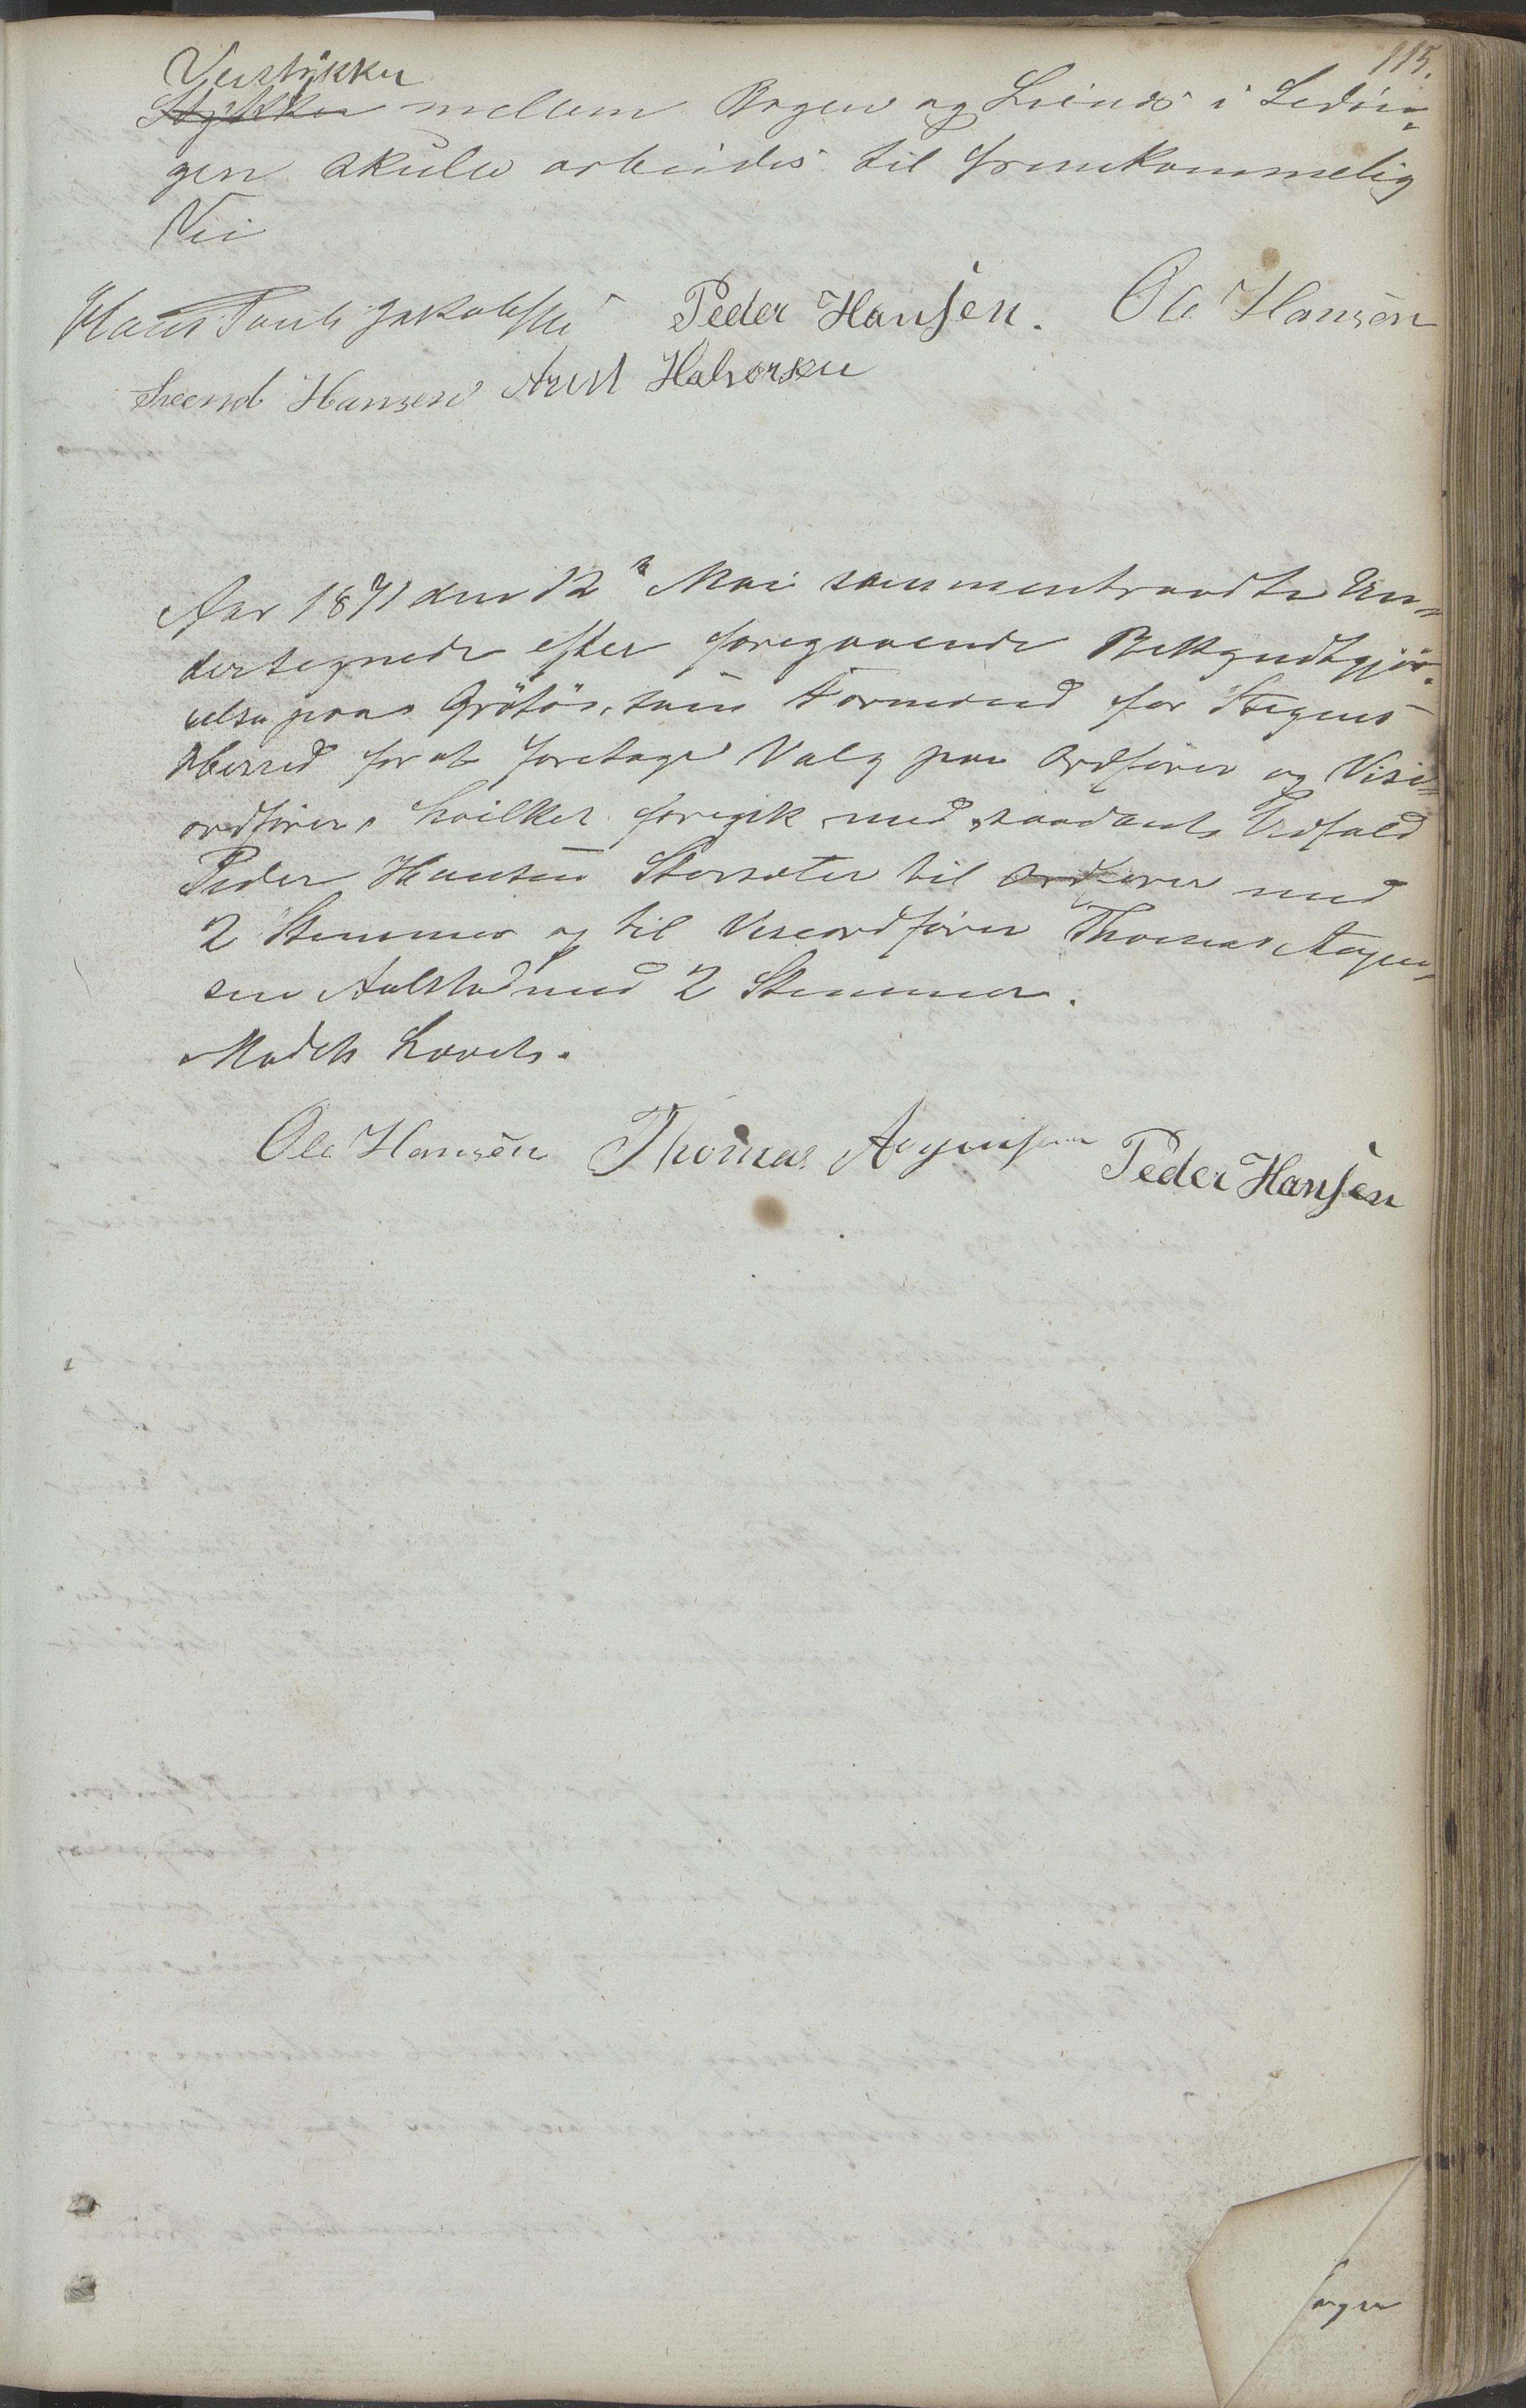 115.
Veistykku
Stykku mellem Bogen og Leines i Ledin-
gen skulde arbeides til fremkommelig
Vei
Hans Pauli Jakobsen Peder Hansen. Ole Hansen
Hansen Arent Halvorsen
Aar 1871 den 12te Mai sammentraadte Un-
dertegnede efter foregaaende Bekjendtgjør-
else paa Grøtø, som Formænd for Stegens
Herred for at foretage Valg paa Ordfører og Vise-
ordfører, hvilket foregik med saadant Udfald
Peder Hansen Storsæter til Ordfører med
2 Stemmer og til Viseordfører Thomas Aagen-
sen Aalstad med 2 Stemmer.
Mødets hævet.
Ole Hansen Thomas Aagensen Peder Hansen